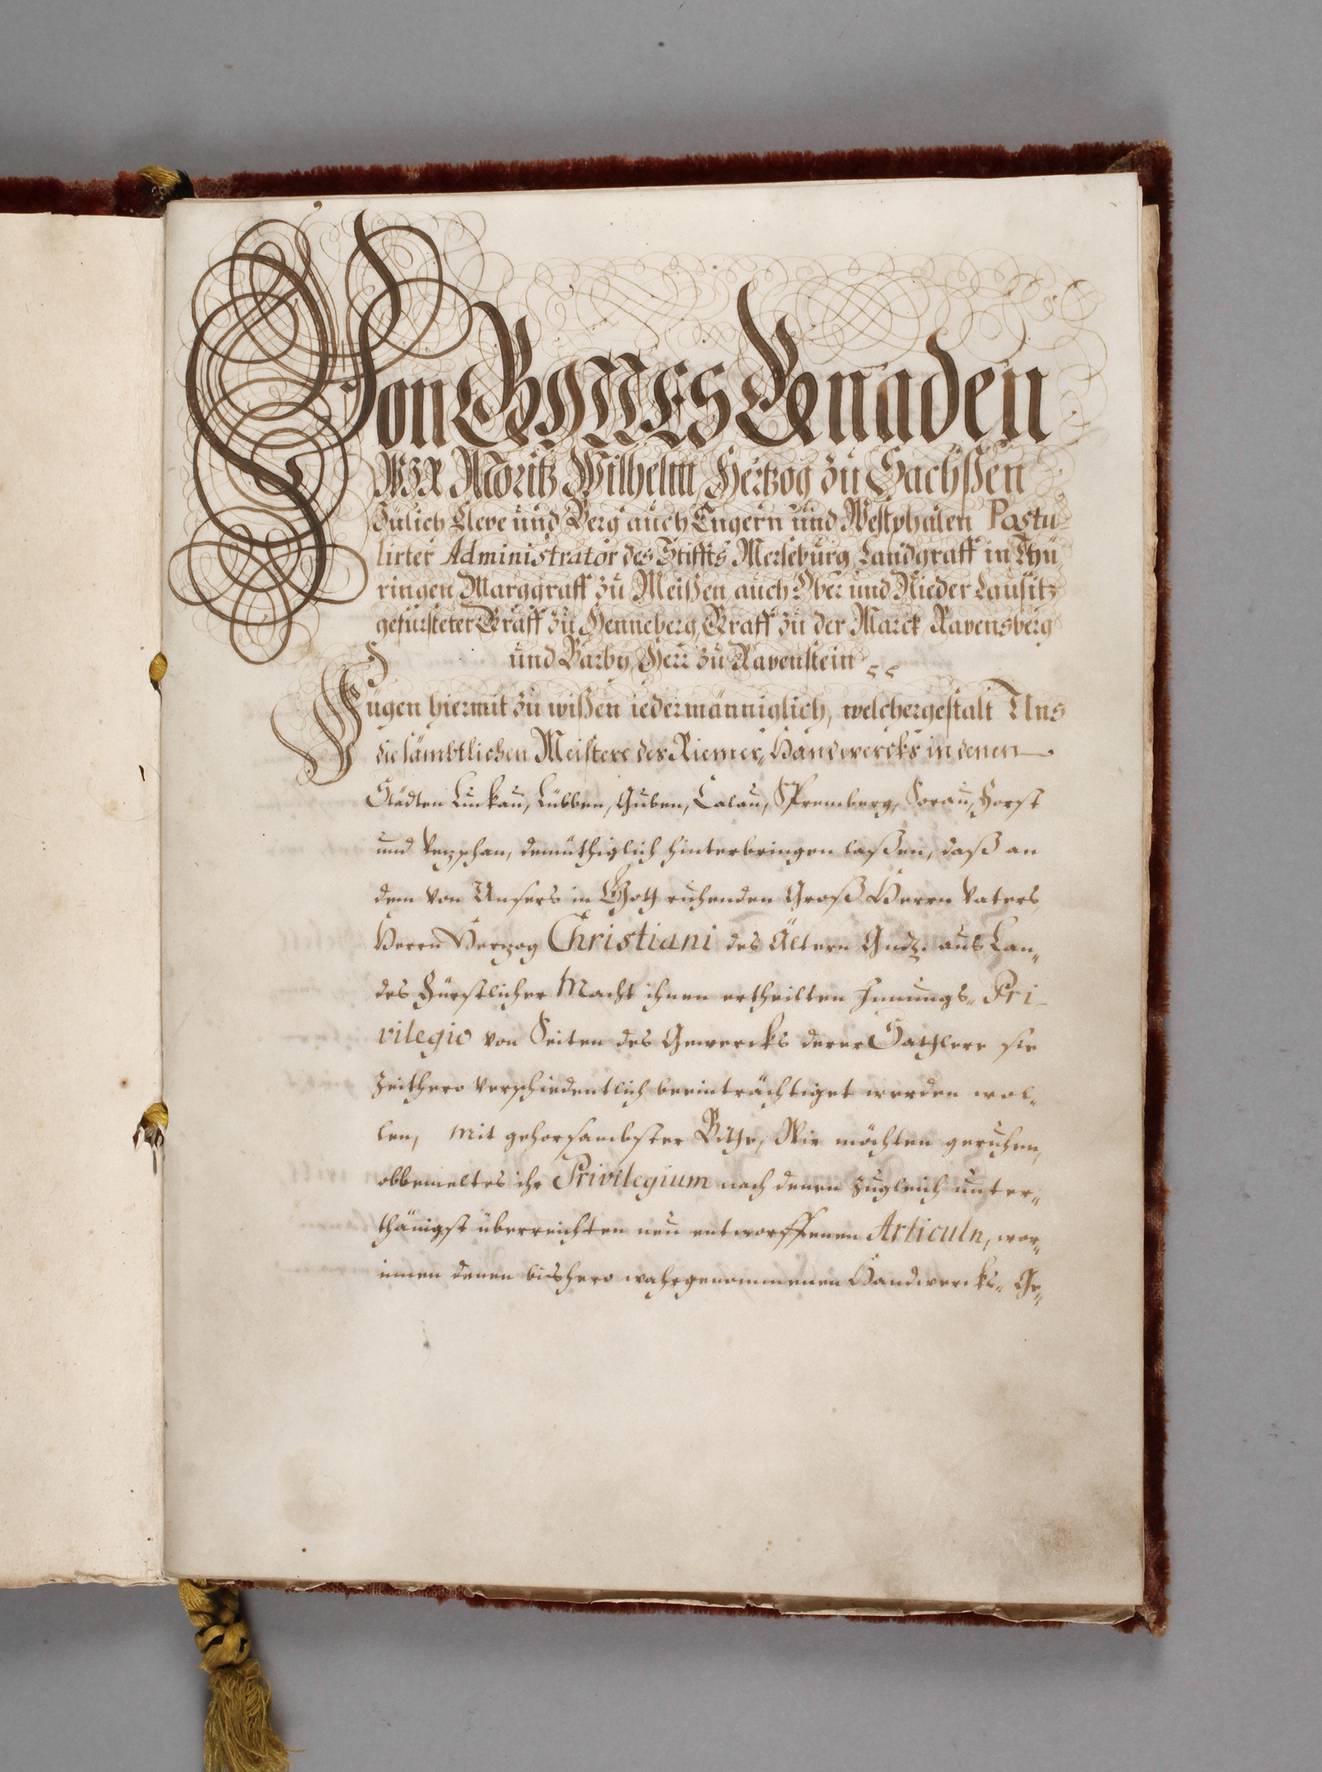 Von GOTTES Gnaden
WIR Moritz Wilhelm, Hertzog zu Sachßen
Jülich Cleve und Berg auch Engern und Westphalen Postu-
lirter Administrator des Stiffts Merseburg, Landgraff in Thü-
ringen Marggraff zu Meißen auch Ober und Nieder Lausitz
gefürsteter Graff zu Henneberg, Graff zu der Marck, Ravensberg
und Barby, Herr zu Ravenstein
Fügen hiermit zu wißen iedermänniglich, welchergestalt Uns
die sämbtlichen Meistere des Riemer-Handwercks in denen
Städten Luckau, Lübben, Guben, Calau, Spremberg, Sorau, Forst
und Vetzschau, demüthiglich hinterbringen laßen, daß an
dem von Unsers in Gott ruhenden Groß Herrn Vaters,
Herrn Herzog Christiani des Ältern Gndz. aus Lan-
des Fürstlicher Macht ihnen ertheilten Innungs- Pri-
vilegio von Seiten des Gewercks derer Sattlere sie
zeithero verschiedentlich beeinträchtiget werden wol-
len, mit gehorsambster Bitte, Wir möchten geruhen,
obbemeltes ihr Privilegium nach denen zugleich unter-
thänigst überreichten neu entworffenen Articuln, wor-
innen denen bishero wahrgenommenen Handwercks- Ge-